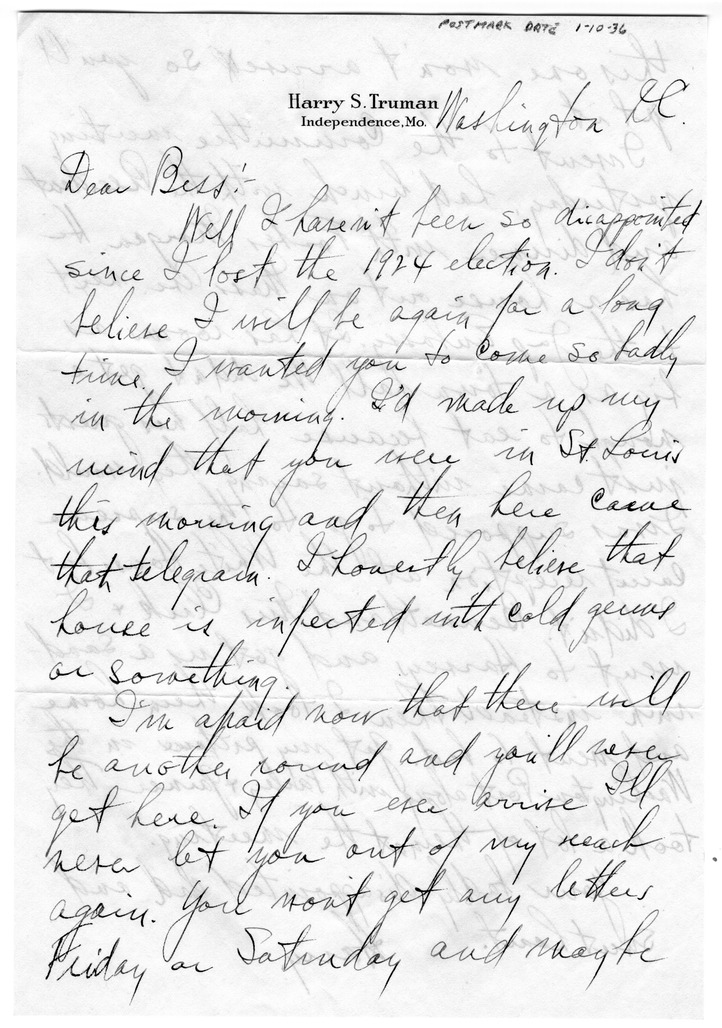 POSTMARK DATE 1-10-36
Harry S. Truman
Independence, Mo.
Washington DC.
Dear Bess:-
Well I haven't been so disappointed
since I lost the 1924 election. I don't
believe I will be again for a long
time. I wanted you to come so badly
in the morning. I'd made up my
mind that you were in St. Louis
this morning and then here came
that telegram. I honestly believe that
house is infected with cold germs
or something.
I'm afraid now that there will
be another round and you'll never
get here. If you ever arrive I'll
never let you out of my reach
again. You won't get any letters
Friday or Saturday and maybe